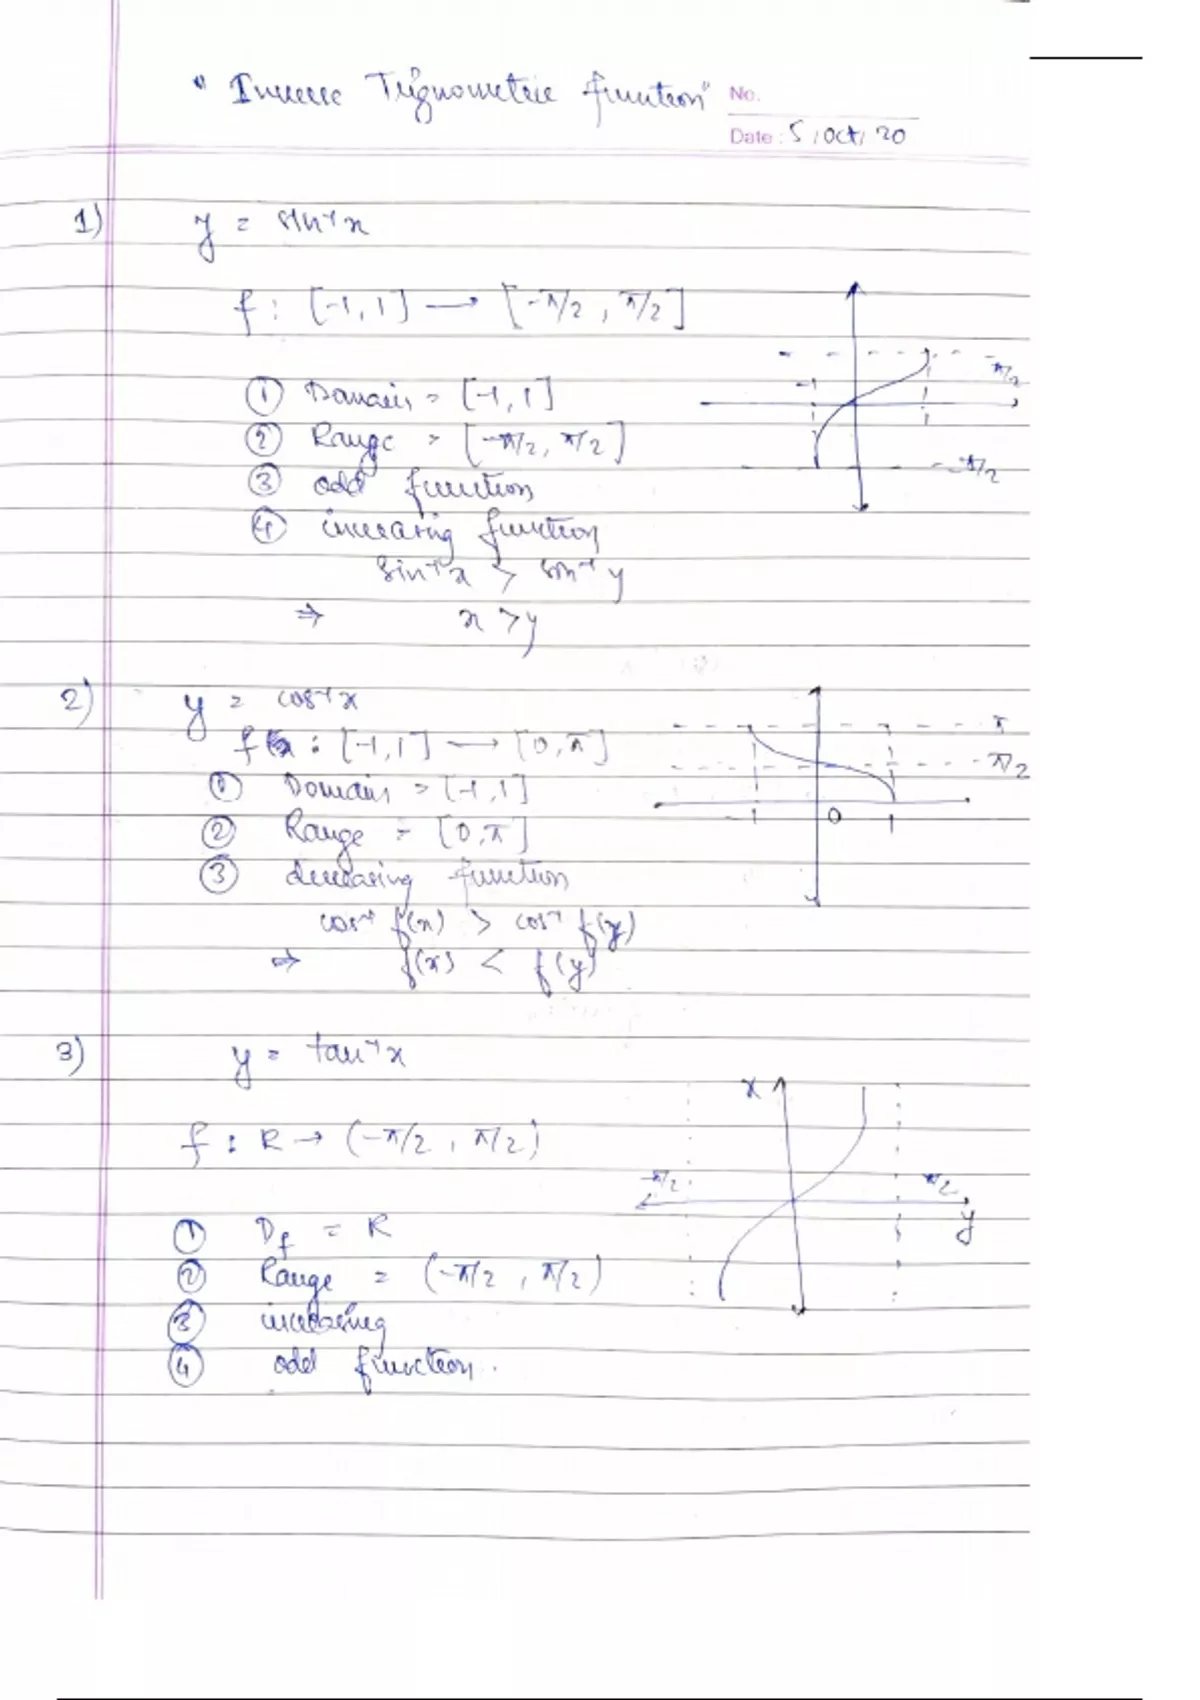 "Inverse Trignometric function"
No.
Date : 5 / Oct / 20
1) y = sin⁻¹x
f : [-1, 1] → [-π/2 , π/2]
① Domain = [-1, 1]
② Range = [-π/2, π/2]
③ odd function
④ increasing function
sin⁻¹x > sin⁻¹y
⇒ x > y
-1
π/2
-π/2
2) y = cos⁻¹x
f : [-1, 1] → [0, π]
① Domain = [-1, 1]
② Range = [0, π]
③ decreasing function
cos⁻¹ f(x) > cos⁻¹ f(y)
⇒ f(x) < f(y)
π
π/2
-1 0 1
3) y = tan⁻¹x
f : R → (-π/2 , π/2)
① Df = R
② Range = (-π/2 , π/2)
③ increasing
④ odd function.
x
-π/2 π/2
y